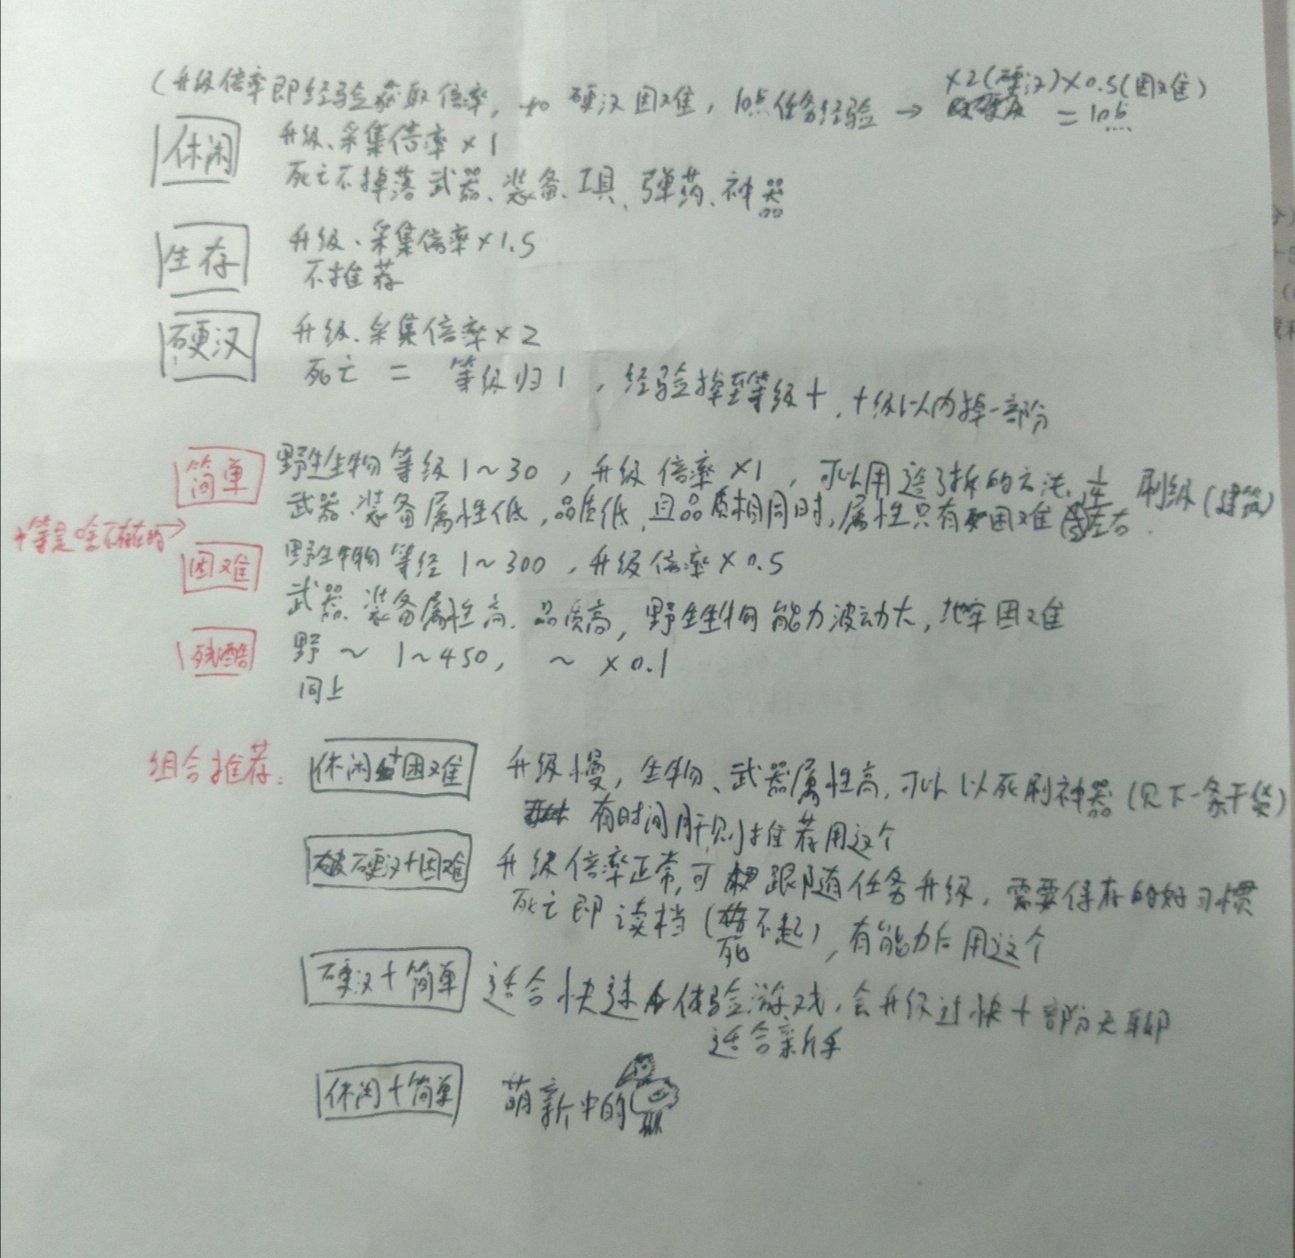 (升级倍率即经验获取倍率, 如 硬汉困难, 10点任务经验 → ×2(硬汉)×0.5(困难)
= 10点
休闲
升级、采集倍率×1
死亡不掉落武器、装备、工具、弹药、神器
生存
升级、采集倍率×1.5
不推荐
硬汉
升级、采集倍率×2
死亡 = 等级归1, 经验掉至等级十, 十级以内掉一部分
简单
野生生物等级1~30, 升级倍率×1, 可以用造了拆的方法 刷级(建筑)
武器、装备属性低, 品质低, 且品质相同时, 属性只有困难 左右.
中等是啥不存在的→
困难
野生生物等级1~300, 升级倍率×0.5
武器、装备属性高、品质高, 野生生物能力波动大, 地牢困难
残酷
野 ~ 1~450, ~ ×0.1
同上
组合推荐:
休闲+困难
升级慢, 生物、武器属性高, 可以以死刷神器(见下一条干货)
有时间肝则推荐用这个
硬汉+困难
升级倍率正常, 可跟随任务升级, 需要保存的好习惯
死亡即读档(死不起), 有能力后用这个
硬汉+简单
适合快速体验游戏, 会升级过快+部分无聊
适合新手
休闲+简单
萌新中的